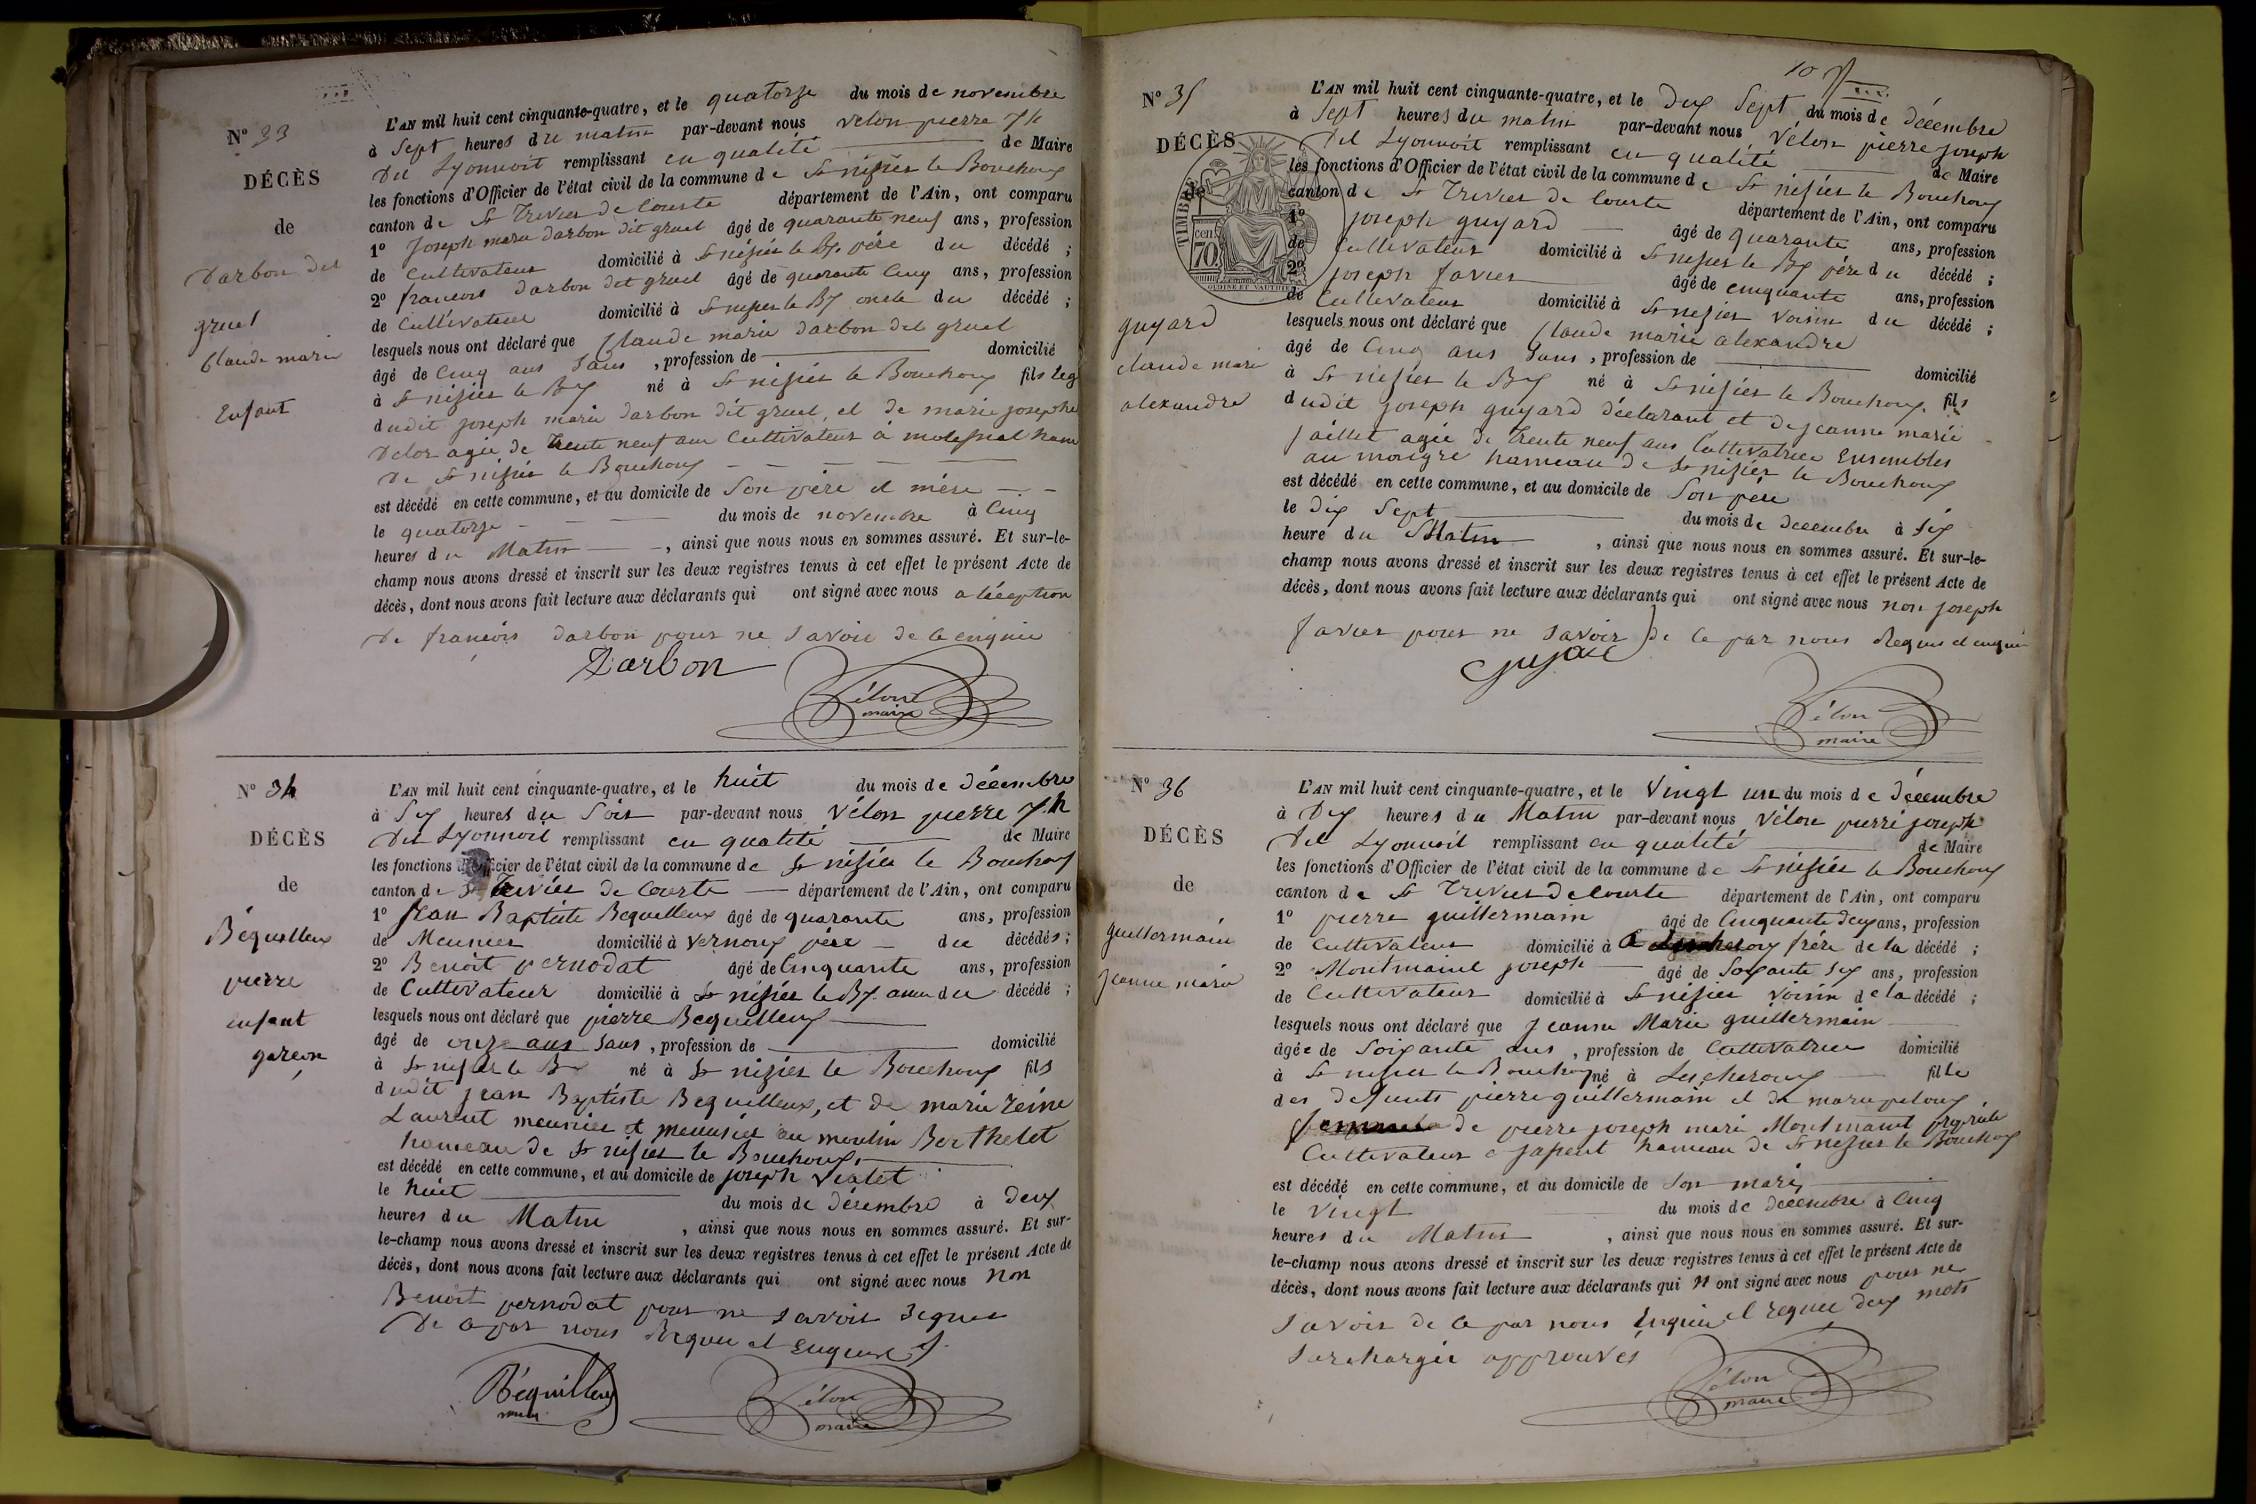 N° 33
DÉCÈS
de
Darbon dit
gruel
Claude marie
Enfant
L'AN mil huit cent cinquante-quatre, et le quatorze du mois de novembre
à Sept heures du matin par-devant nous Vélon pierre Jh
Dit Lyonnoit remplissant en qualité de Maire
les fonctions d'Officier de l'état civil de la commune de St nisier le Bouchoux
canton de St Trivier de Courte département de l'Ain, ont comparu
1° Joseph marie darbon dit gruel âgé de quarante neuf ans, profession
de Cultivateur domicilié à St nisier le Bx père du décédé ;
2° francois darbon dit gruel âgé de quarante Cinq ans, profession
de Cultivateur domicilié à St nisier le Bx oncle du décédé ;
lesquels nous ont déclaré que Claude marie darbon dit gruel
âgé de Cinq ans Sans , profession de domicilié
à St nizier le Bx né à St nizier le Bouchoux fils leg
dudit joseph marie darbon dit gruel, et de marie josephe
Delor agée de trente neuf ans Cultivateur à hameau
De St nisier le Bouchoux
est décédé en cette commune, et au domicile de Son père et mère
le quatorze du mois de novembre à Cinq
heures du Matin , ainsi que nous nous en sommes assuré. Et sur-le-
champ nous avons dressé et inscrit sur les deux registres tenus à cet effet le présent Acte de
décès, dont nous avons fait lecture aux déclarants qui ont signé avec nous a léception
De francois darbon pour ne Savoir de ce enquie
Darbon
Vélon
maire
N° 34
DÉCÈS
de
Béquilleux
pierre
enfant
garcon
L'AN mil huit cent cinquante-quatre, et le huit du mois de décembre
à Six heures du Soir par-devant nous Vélon pierre Jh
Dit Lyonnoit remplissant en qualité de Maire
les fonctions d'Officier de l'état civil de la commune de St nisier le Bouchoux
canton de St Trivier de Courte département de l'Ain, ont comparu
1° Jean Baptiste Bequilleux âgé de quarante ans, profession
de Meunier domicilié à Vernoux père du décédés ;
2° Benoit pernodat âgé de Cinquante ans, profession
de Cultivateur domicilié à St nisier le Bx. du décédé ;
lesquels nous ont déclaré que pierre Bequilleux
âgé de onze ans Sans , profession de domicilié
à St nisier le Bx né à St nizier le Bouchoux fils
dudit jean Baptiste Bequilleux, et de marie reine
Laurent meunier et menusier au moulin Berthelet
hameau de St nisier le Bouchoux,
est décédé en cette commune, et au domicile de joseph Vialet
le huit du mois de décembre à deux
heures du Matin , ainsi que nous nous en sommes assuré. Et sur-
le-champ nous avons dressé et inscrit sur les deux registres tenus à cet effet le présent Acte de
décès, dont nous avons fait lecture aux déclarants qui ont signé avec nous non
Benoit pernodat pour ne Savoir Signer
De ce par nous Requie et enquie
Béquilleux
Vélon
maire
10
N° 35
DÉCÈS
de
TIMBRE
cent
70
OUDINÉ ET VAUTHIER
guyard
claude marie
alexandre
L'AN mil huit cent cinquante-quatre, et le Dix Sept du mois de décembre
à Sept heures du matin par-devant nous Vélon pierre joseph
Dit Lyonnoit remplissant en qualité de Maire
les fonctions d'Officier de l'état civil de la commune de St nisier le Bouchoux
canton de St Trivier de Courte département de l'Ain, ont comparu
1° joseph guyard âgé de quarante ans, profession
de Cultivateur domicilié à St nisier le Bx père du décédé ;
2° joseph favier âgé de cinquante ans, profession
de Cultivateur domicilié à St nisier Voisin du décédé ;
lesquels nous ont déclaré que Claude marie alexandre
âgé de Cinq ans Sans , profession de domicilié
à St nisier le Bx né à St nisier le Bouchoux. fils
dudit joseph guyard déclarant et de jeanne marie
jaillet agée de trente neuf ans Cultivatrice Ensembles
au hameau de St nisier le Bouchoux
est décédé en cette commune, et au domicile de Son père
le Dix Sept du mois de Decembre à Six
heure du Matin , ainsi que nous nous en sommes assuré. Et sur-le-
champ nous avons dressé et inscrit sur les deux registres tenus à cet effet le présent Acte de
décès, dont nous avons fait lecture aux déclarants qui ont signé avec nous non joseph
favier pour ne Savoir de ce par nous Requis et enquis
Guyard
Vélon
maire
N° 36
DÉCÈS
de
guillermain
jeanne marie
L'AN mil huit cent cinquante-quatre, et le Vingt un du mois de décembre
à Dix heures du Matin par-devant nous Vélon pierre joseph
Dit Lyonnoit remplissant en qualité de Maire
les fonctions d'Officier de l'état civil de la commune de St nisier le Bouchoux
canton de St Trivier de Courte département de l'Ain, ont comparu
1° pierre guillermain âgé de Cinquante deux ans, profession
de Cultivateur domicilié à Lescheroux frère de la décédé ;
2° Montmaint joseph âgé de Soixante Six ans, profession
de Cultivateur domicilié à St nisier Voisin de la décédé ;
lesquels nous ont déclaré que Jeanne Marie guillermain
âgée de Soixante ans , profession de Cultivatrice domicilié
à St nisier le Bouchoux né à Lescheroux fille
des defunts pierre guillermain et de marie peloux
femme de pierre joseph marie Montmaint propriété
Cultivateur a japeut hameau de St nisier le Bouchoux
est décédé en cette commune, et au domicile de Son mari
le Vingt du mois de decembre à Cinq
heures du Matin , ainsi que nous nous en sommes assuré. Et sur-
le-champ nous avons dressé et inscrit sur les deux registres tenus à cet effet le présent Acte de
décès, dont nous avons fait lecture aux déclarants qui n ont signé avec nous pour ne
Savoir de ce par nous Enquie et requie deux mots
Surchargée approuvés
Vélon
maire